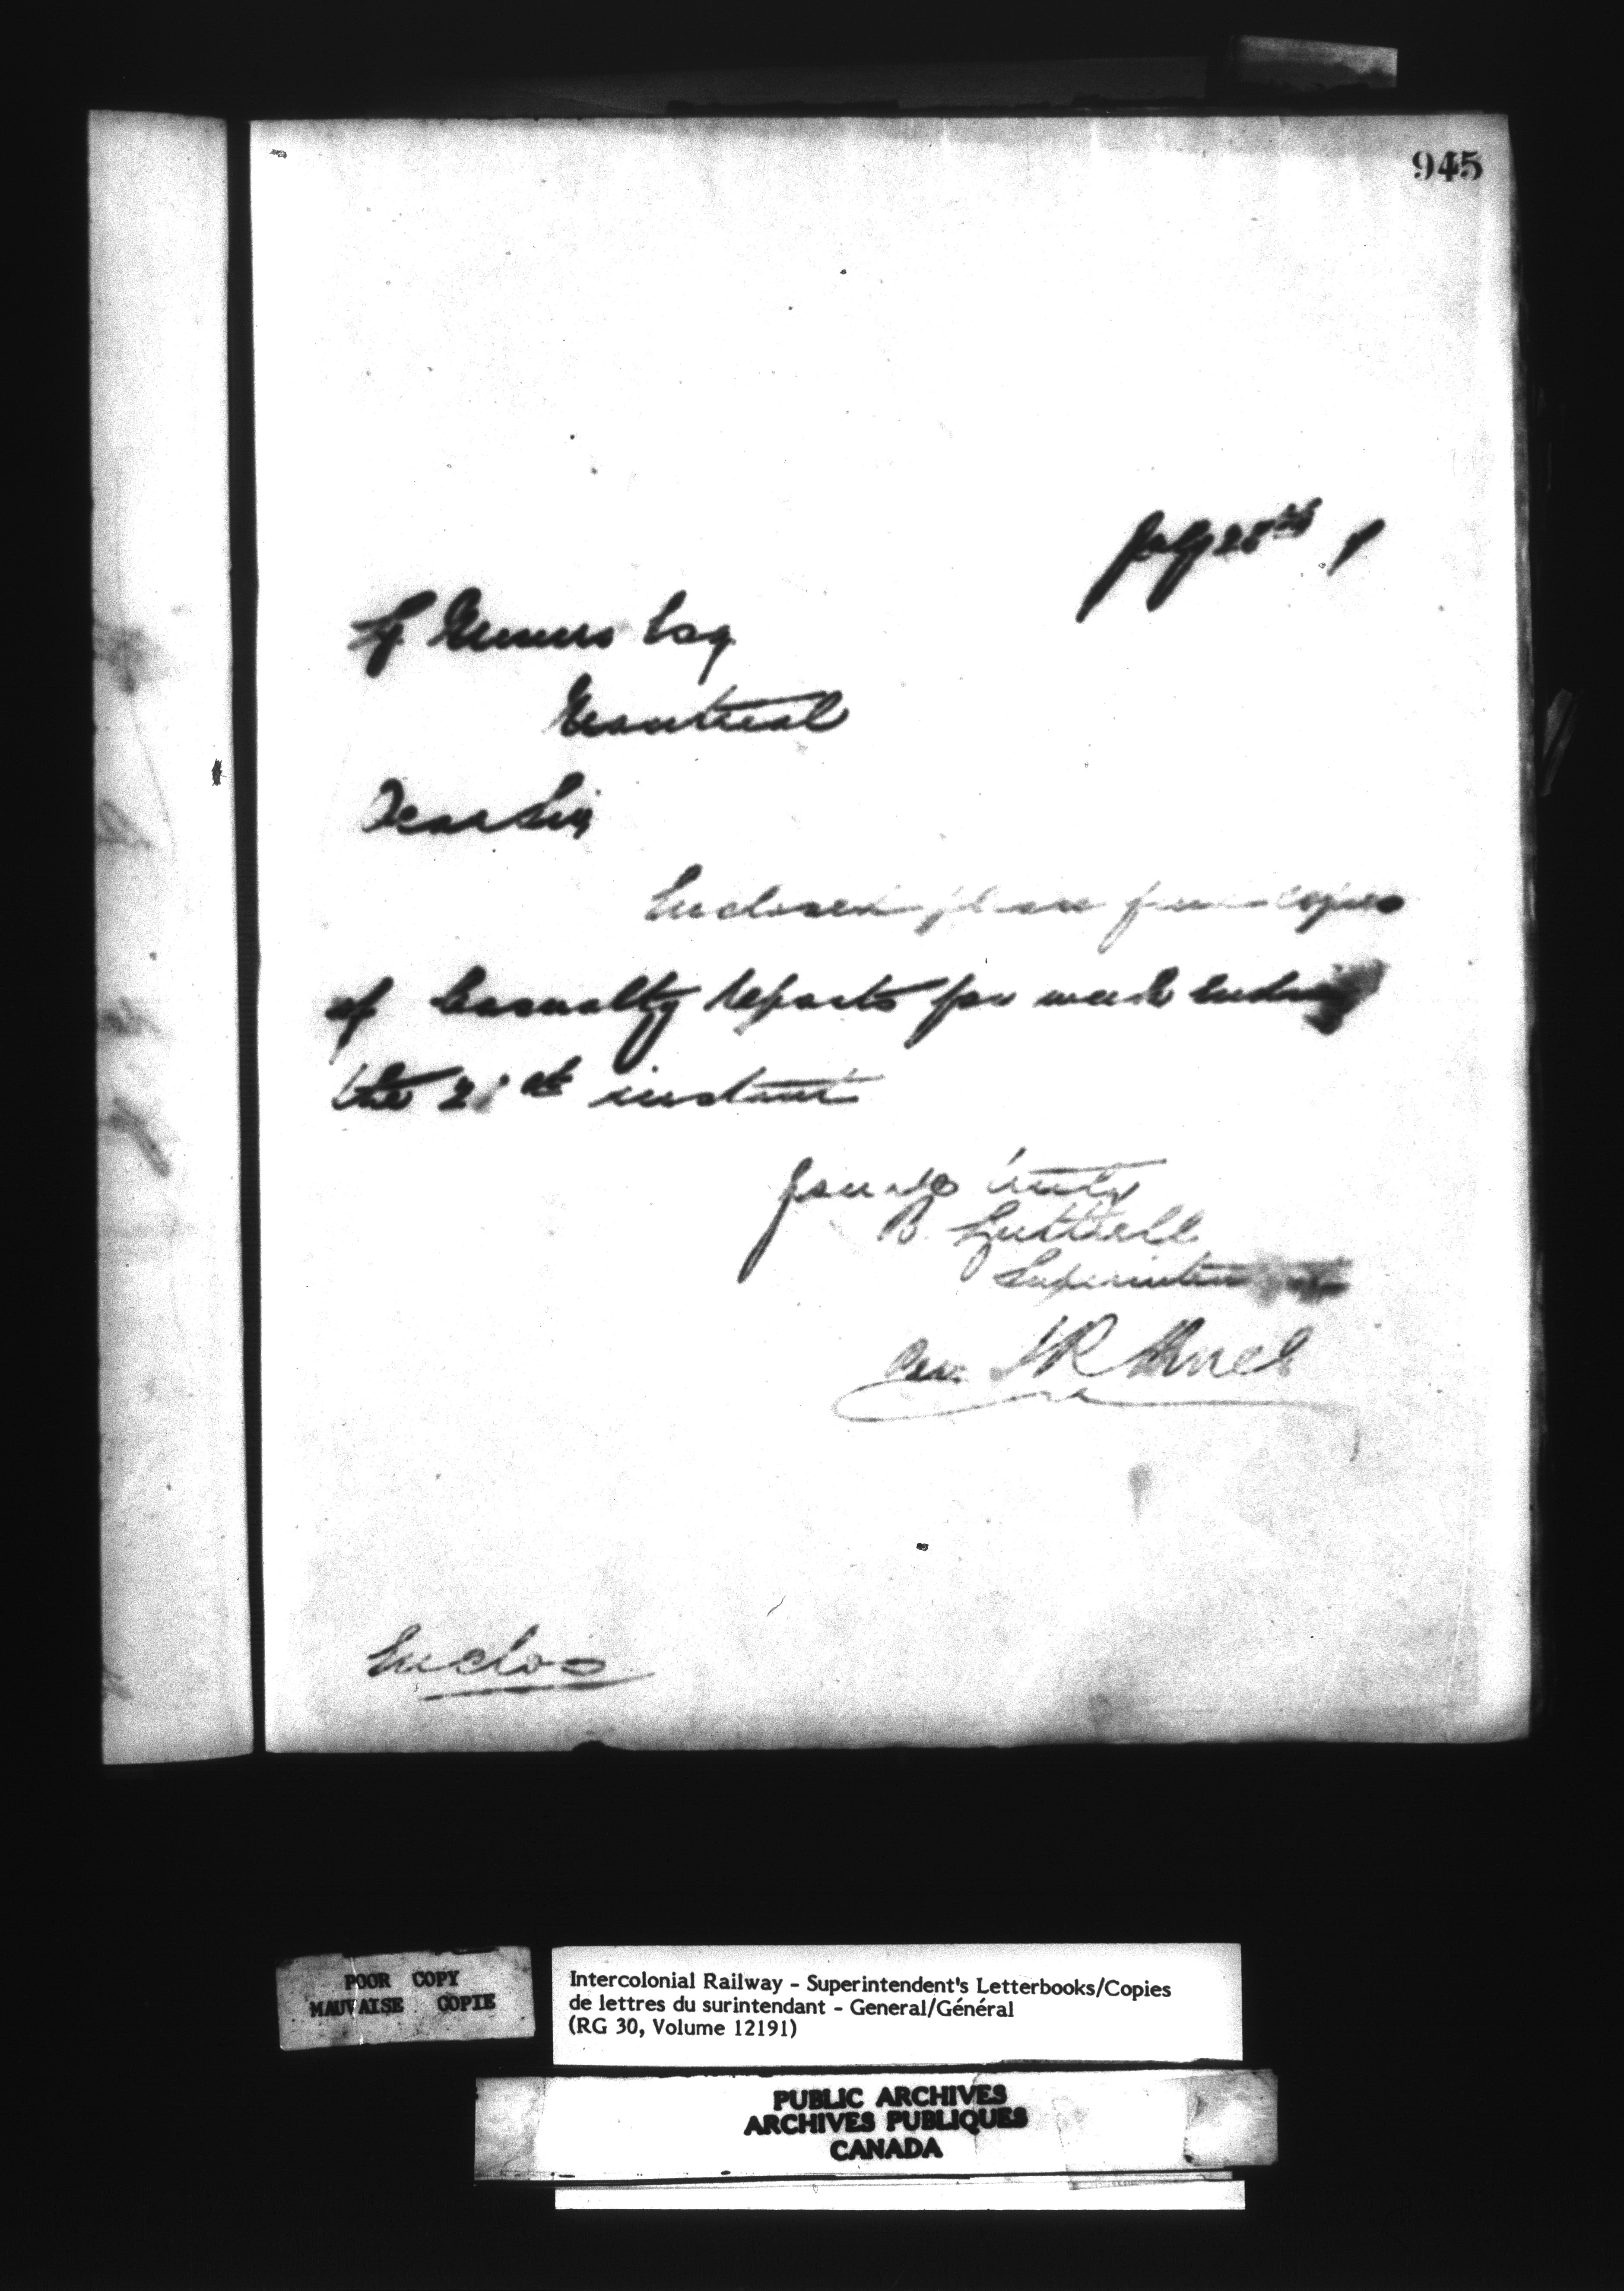 945
July 28th
Esq
Montreal
Dear Sir
Enclosed please find copies
of Casualty Reports for week ending
the 21st instant
Yours truly
B. Luttrell
Superintendent
Per. J R
Enclos
POOR COPY
MAUVAISE COPIE
Intercolonial Railway - Superintendent's Letterbooks/Copies
de lettres du surintendant - General/Général
(RG 30, Volume 12191)
PUBLIC ARCHIVES
ARCHIVES PUBLIQUES
CANADA